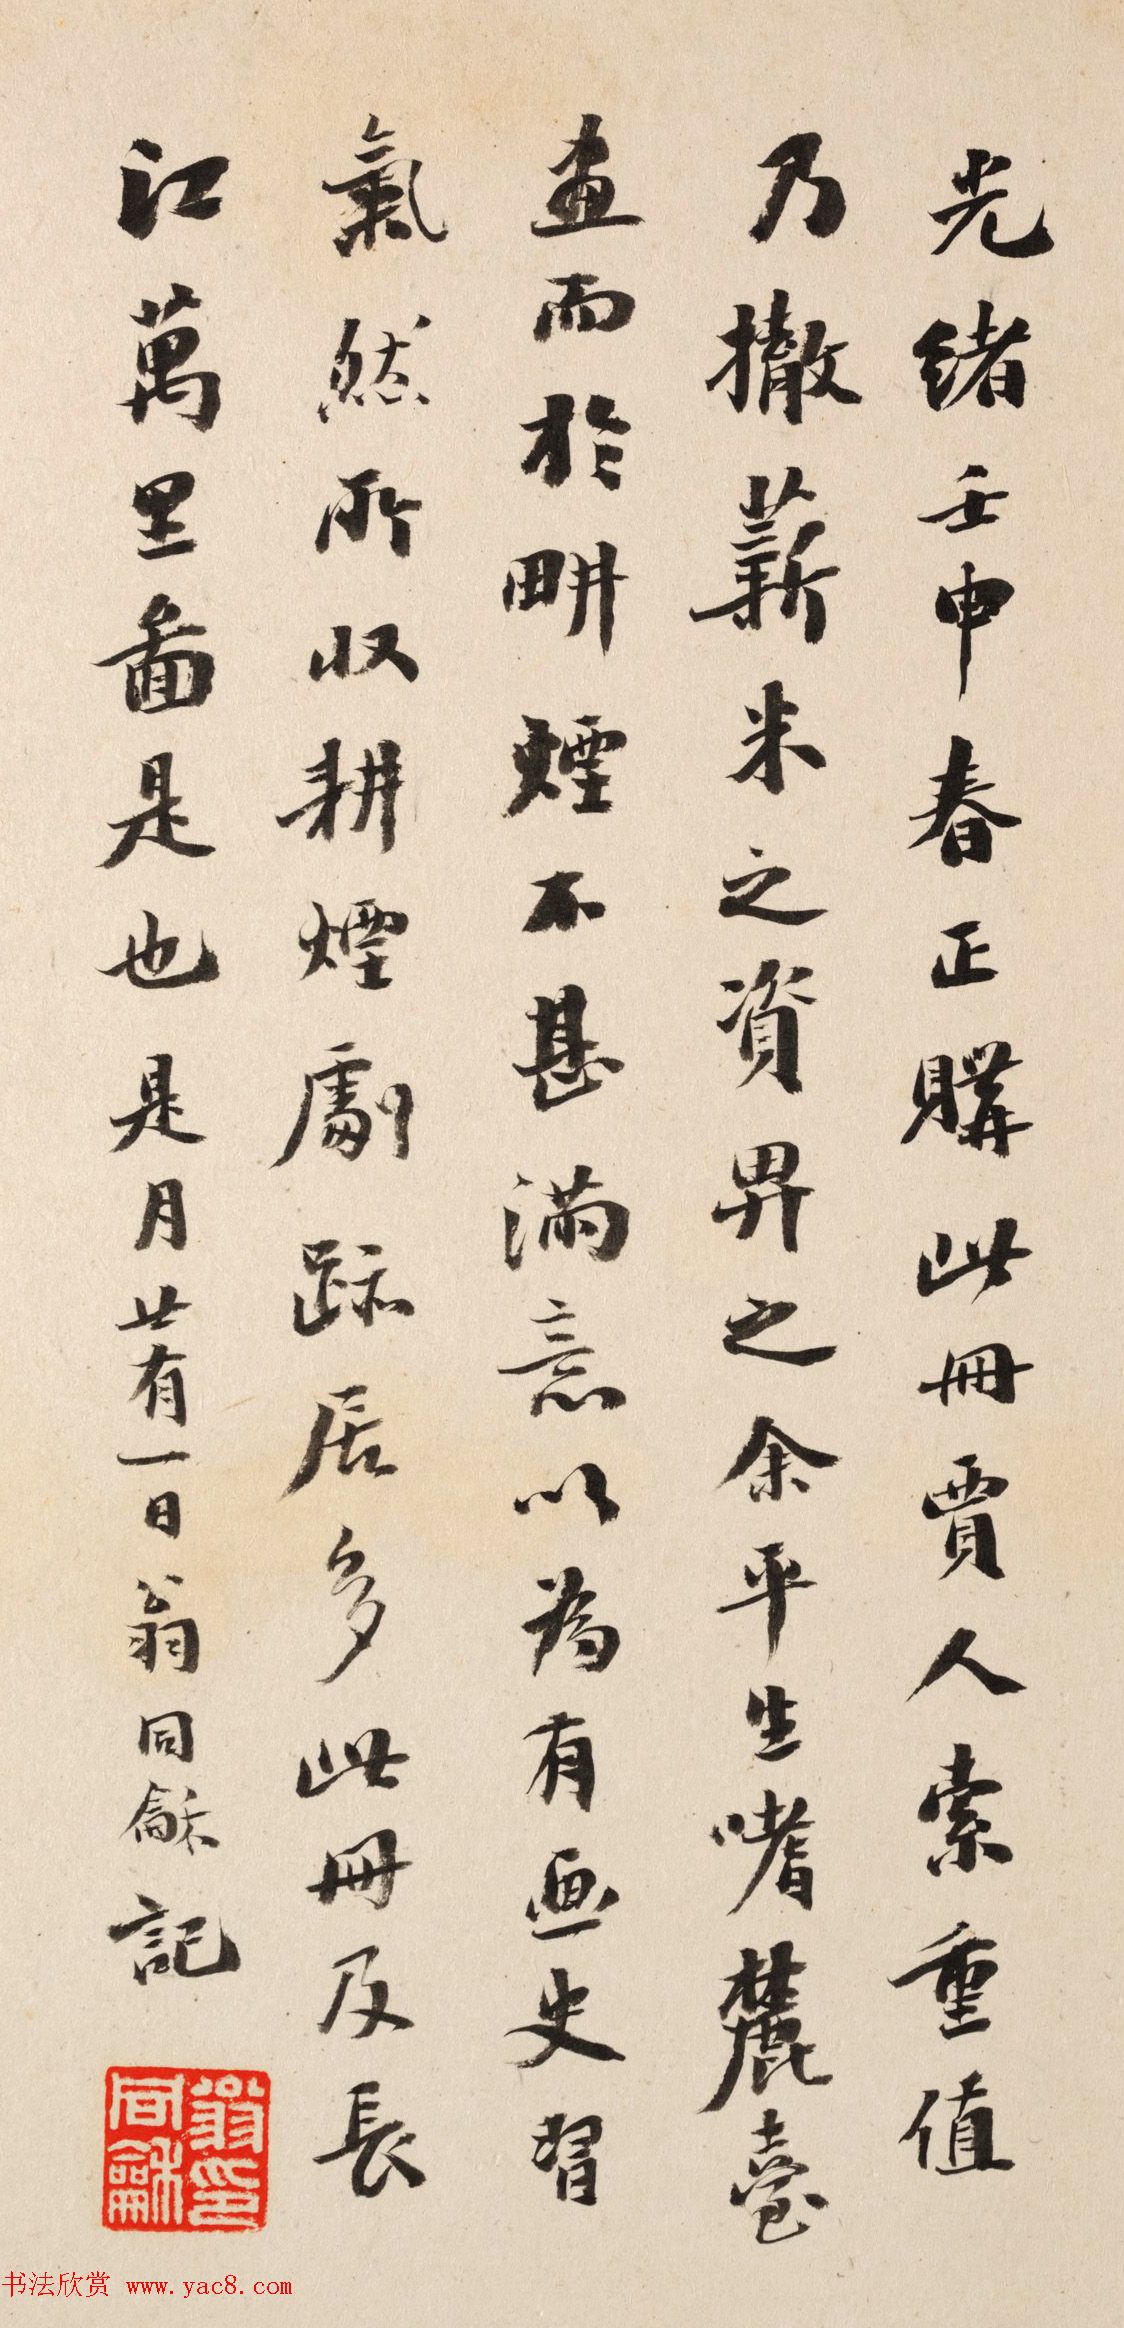 光緒壬申春正購此冊賈人索重值
乃撤薪米之資畀之余平生嗜麓臺
畫而於畊煙不甚滿意以為有画史習
氣然所收耕煙劇跡居多此冊及長
江萬里圖是也是月廿有一日翁同龢記
翁同龢印
书法欣赏 www.yac8.com